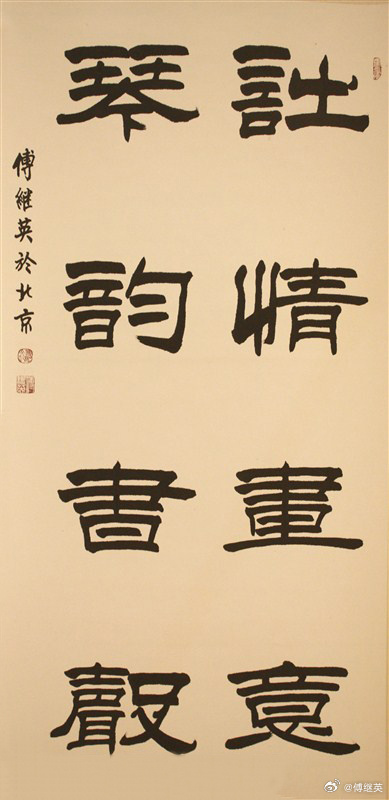 詩情畫意
琴韵書聲
傅继英於北京
@傅继英